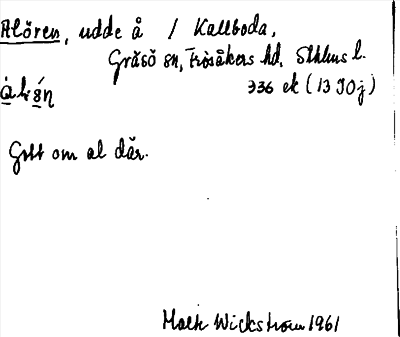 Alören, udde å / Kallboda,
Gräsö sn, Frösåkers hd, Sthlms l.
336 ek (13 I 0 j)
Gott om al där.
Wickström 1961